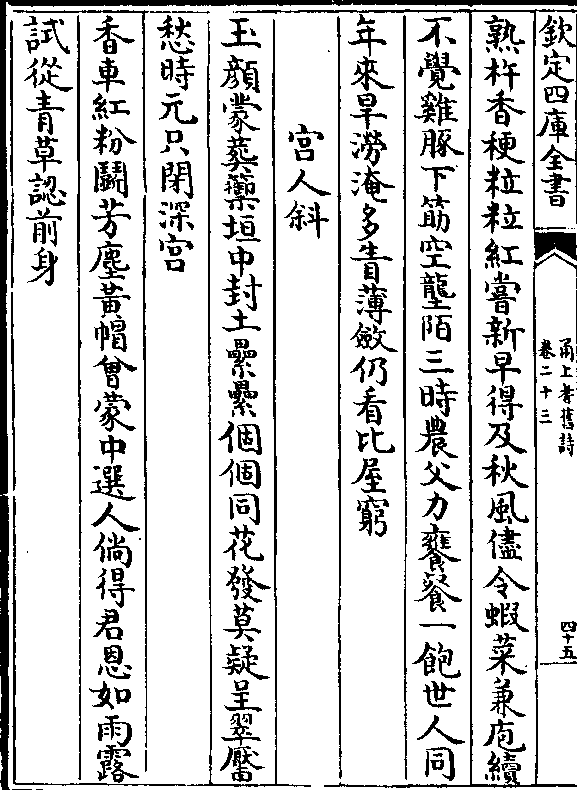 欽定四庫全書
甬上耆舊詩
卷二十三
四十五
熟杵香粳粒粒紅嘗新早得及秋風儘令蝦菜兼庖續
不覺雞豚下筯空壟陌三時農父力饔餐一飽世人同
年來旱澇淹多眚薄斂仍看比屋窮
宫人斜
玉顔蒙葬藥垣中封土纍纍個個同花發莫疑呈翠靨
愁時元只閉深宫
香車紅粉鬭芳塵黃帽曾蒙中選人倘得君恩如雨露
試從青草認前身